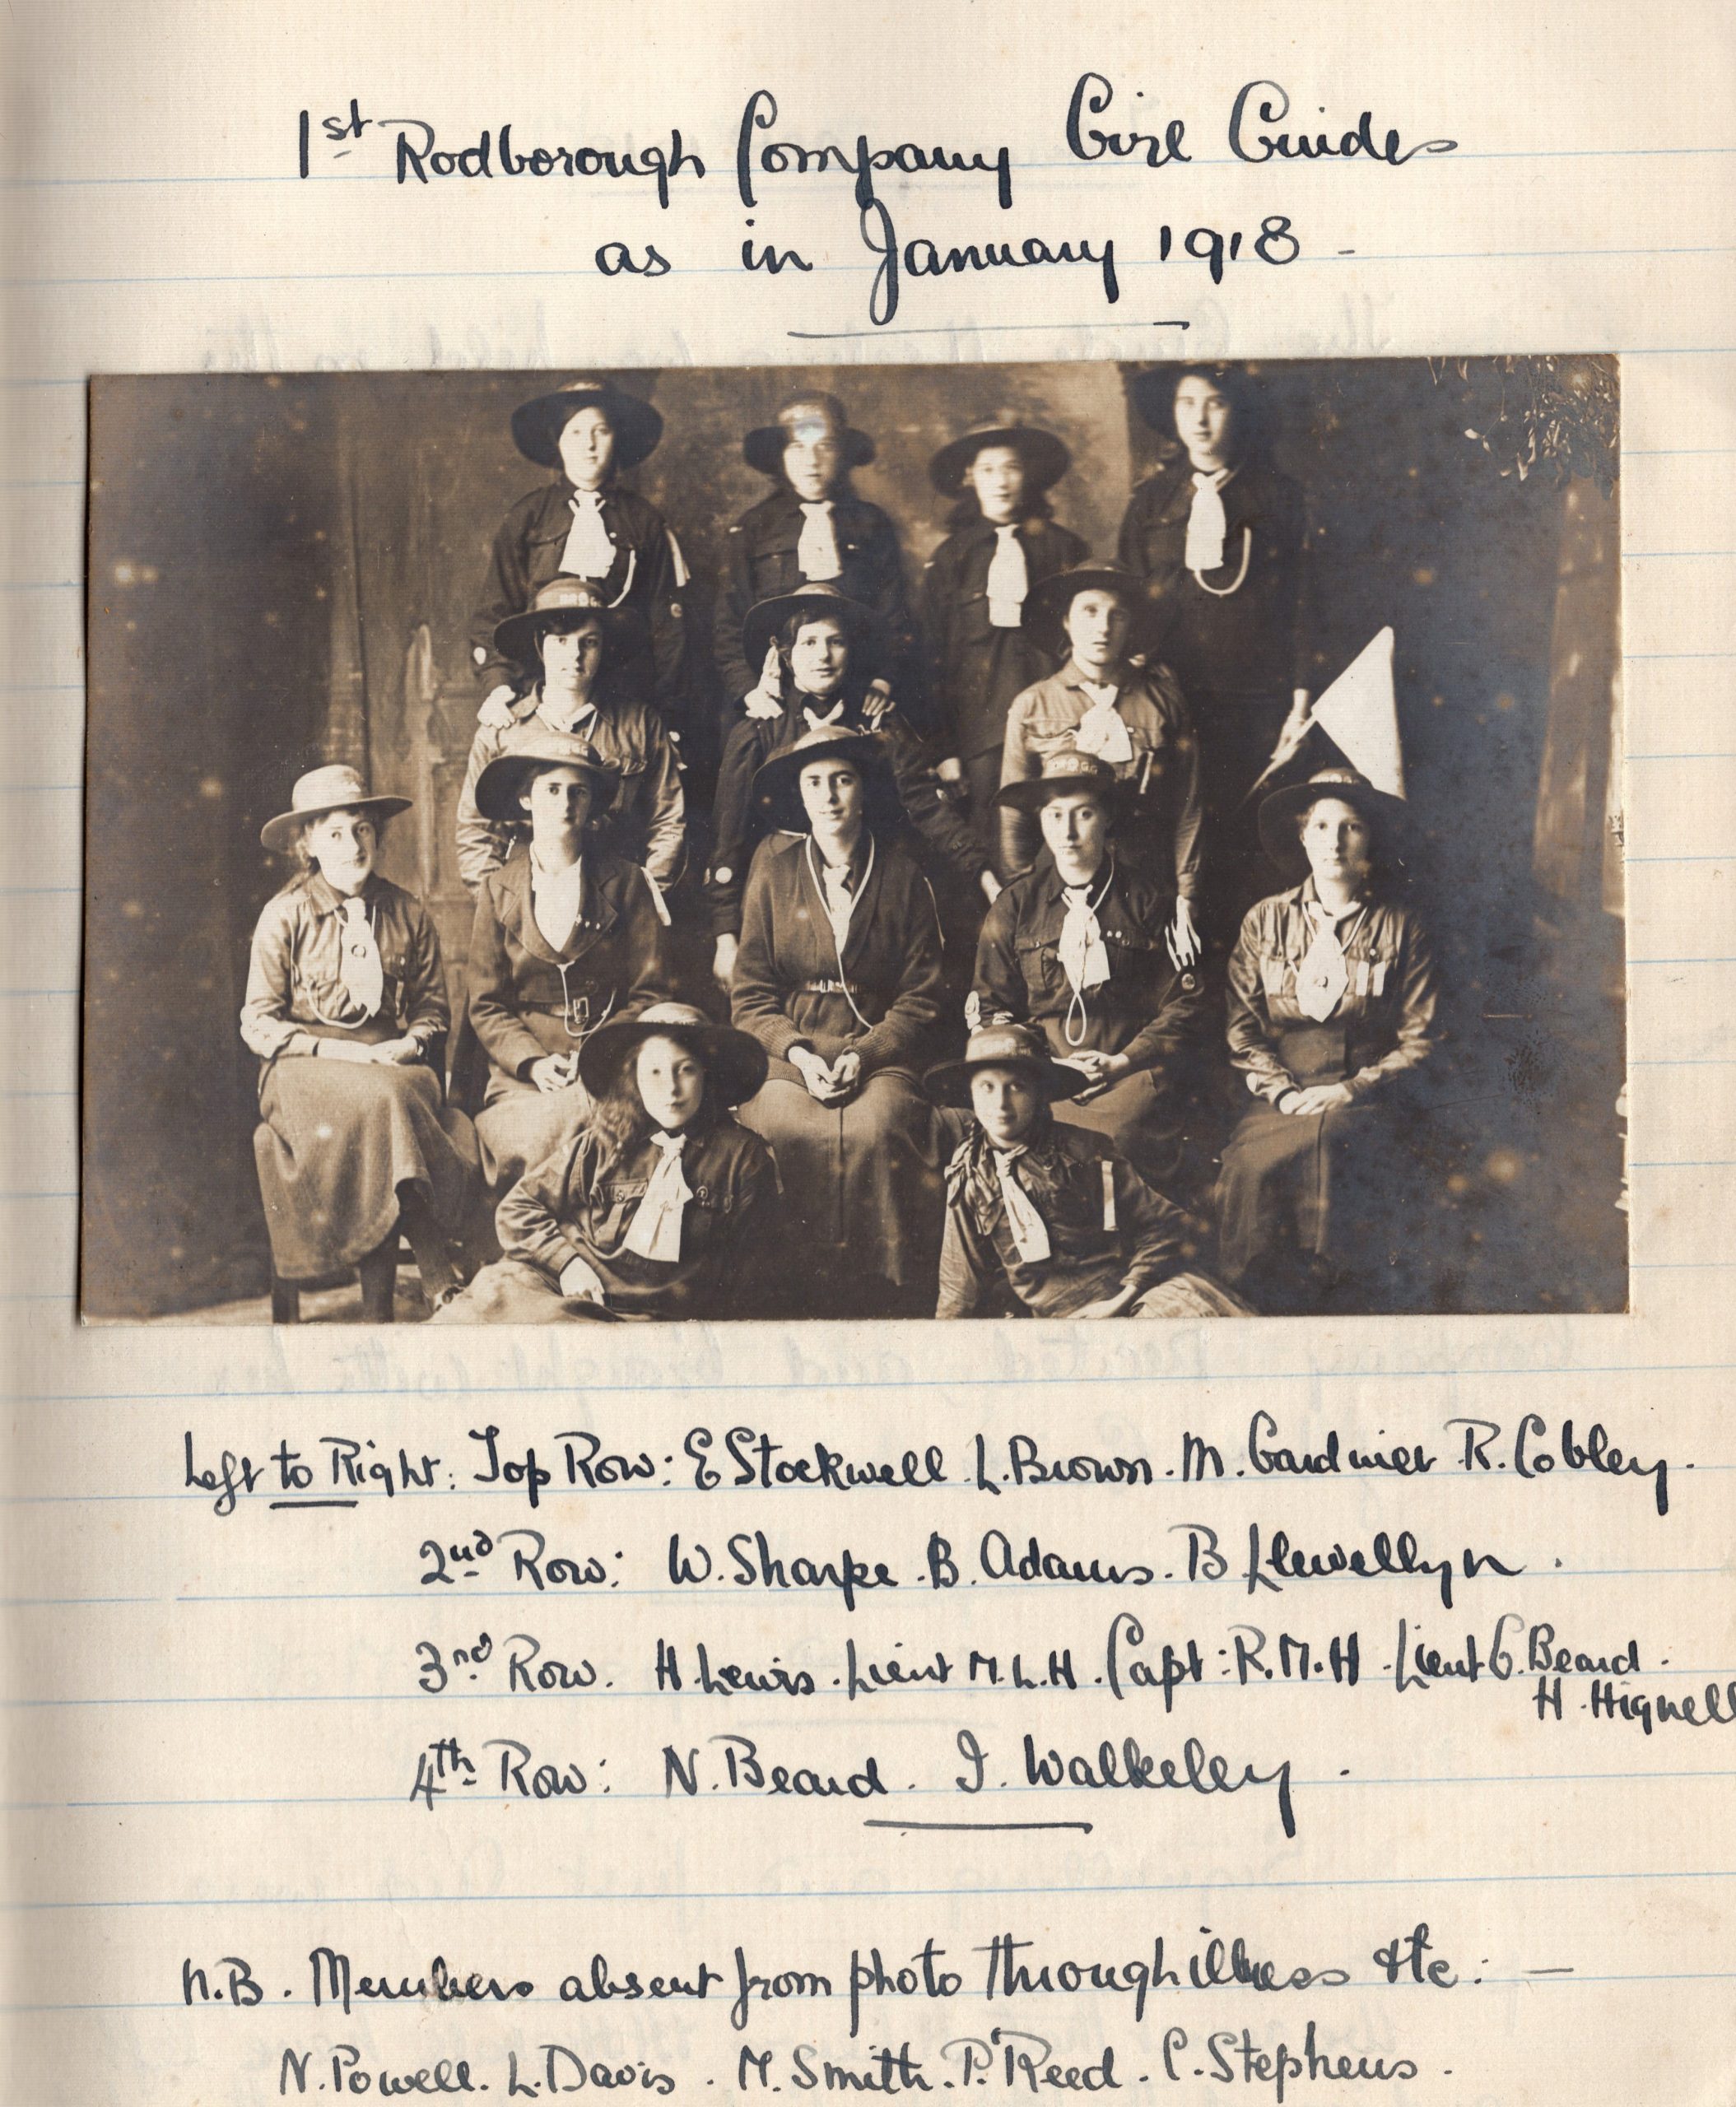 1st Rodborough Company Girl Guides
as in January 1918 -
Left to Right: Top Row: E Stockwell. L. Brown. M. Gardiner R. Cobley.
2nd Row: W. Sharpe. B. Adams. B Llewellyn.
3rd Row. H. Lewis. Lieut M.L.H. Capt: R.M.H. Lieut G. Beard.
H. Hignell
4th Row: N. Beard. I. Walkeley.
N.B. Members absent from photo through illness etc: —
N. Powell. L. Davis. M. Smith. P. Reed. C. Stephens.